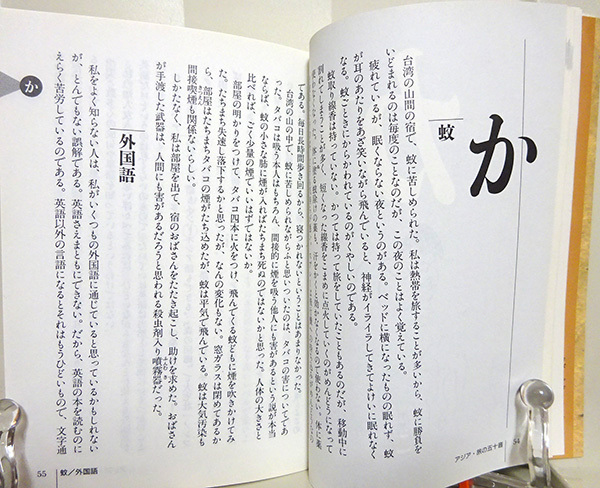 か
蚊
台湾の山間の宿で、蚊に苦しめられた。私は熱帯を旅することが多いから、蚊に勝負を
いどまれるのは毎度のことなのだが、この夜のことはよく覚えている。
疲れているが、眠くならない夜というのがある。ベッドに横になったものの眠れず、蚊
が耳のあたりをあざ笑いながら飛んでいると、神経がイライラしてきてよけいに眠れなく
なる。蚊ごときにからかわれているのがくやしいのである。
蚊取り線香は持っていない。かつては持って旅をしていたこともあるのだが、移動中に
割れてしまうことが多く、短くなった線香をこまめに点火していくのがめんどうになって
アジア・旅の五十音
54
である。毎日長時間歩き回るから、寝つかれないということはあまりなかった。
台湾の山の中で、蚊に苦しめられながらふと思いついたのは、タバコの害についてであ
った。タバコは吸う本人はもちろん、間接的に煙を吸う他人にも害があるという説が本当
ならば、蚊の小さな肺に煙が入ればたちまち死ぬのではないかと思った。人体の大きさと
比べれば、ごく少量の煙でいいはずではないか。
部屋の明かりをつけて、タバコ四本に火をつけ、飛んでくる蚊どもに煙を吹きかけてみ
た。たちまち失速し落下するかと思ったが、なんの変化もない。窓ガラスは閉めてあるか
ら、部屋はたちまちタバコの煙がたち込めたが、蚊は平気で飛んでいる。蚊は大気汚染も
間接喫煙も関係ないらしい。
しかたなく、私は部屋を出て、宿のおばさんをたたき起こし、助けを求めた。おばさん
が手渡した武器は、人間にも害があるだろうと思われる殺虫剤入り噴霧器だった。
外国語
私をよく知らない人は、私がいくつもの外国語に通じていると思っているかもしれない
が、とんでもない誤解である。英語さえまともにできない。だから、英語の本を読むのに
えらく苦労しているのである。英語以外の言語になるとそれはもうひどいもので、文字通
か
55
蚊／外国語